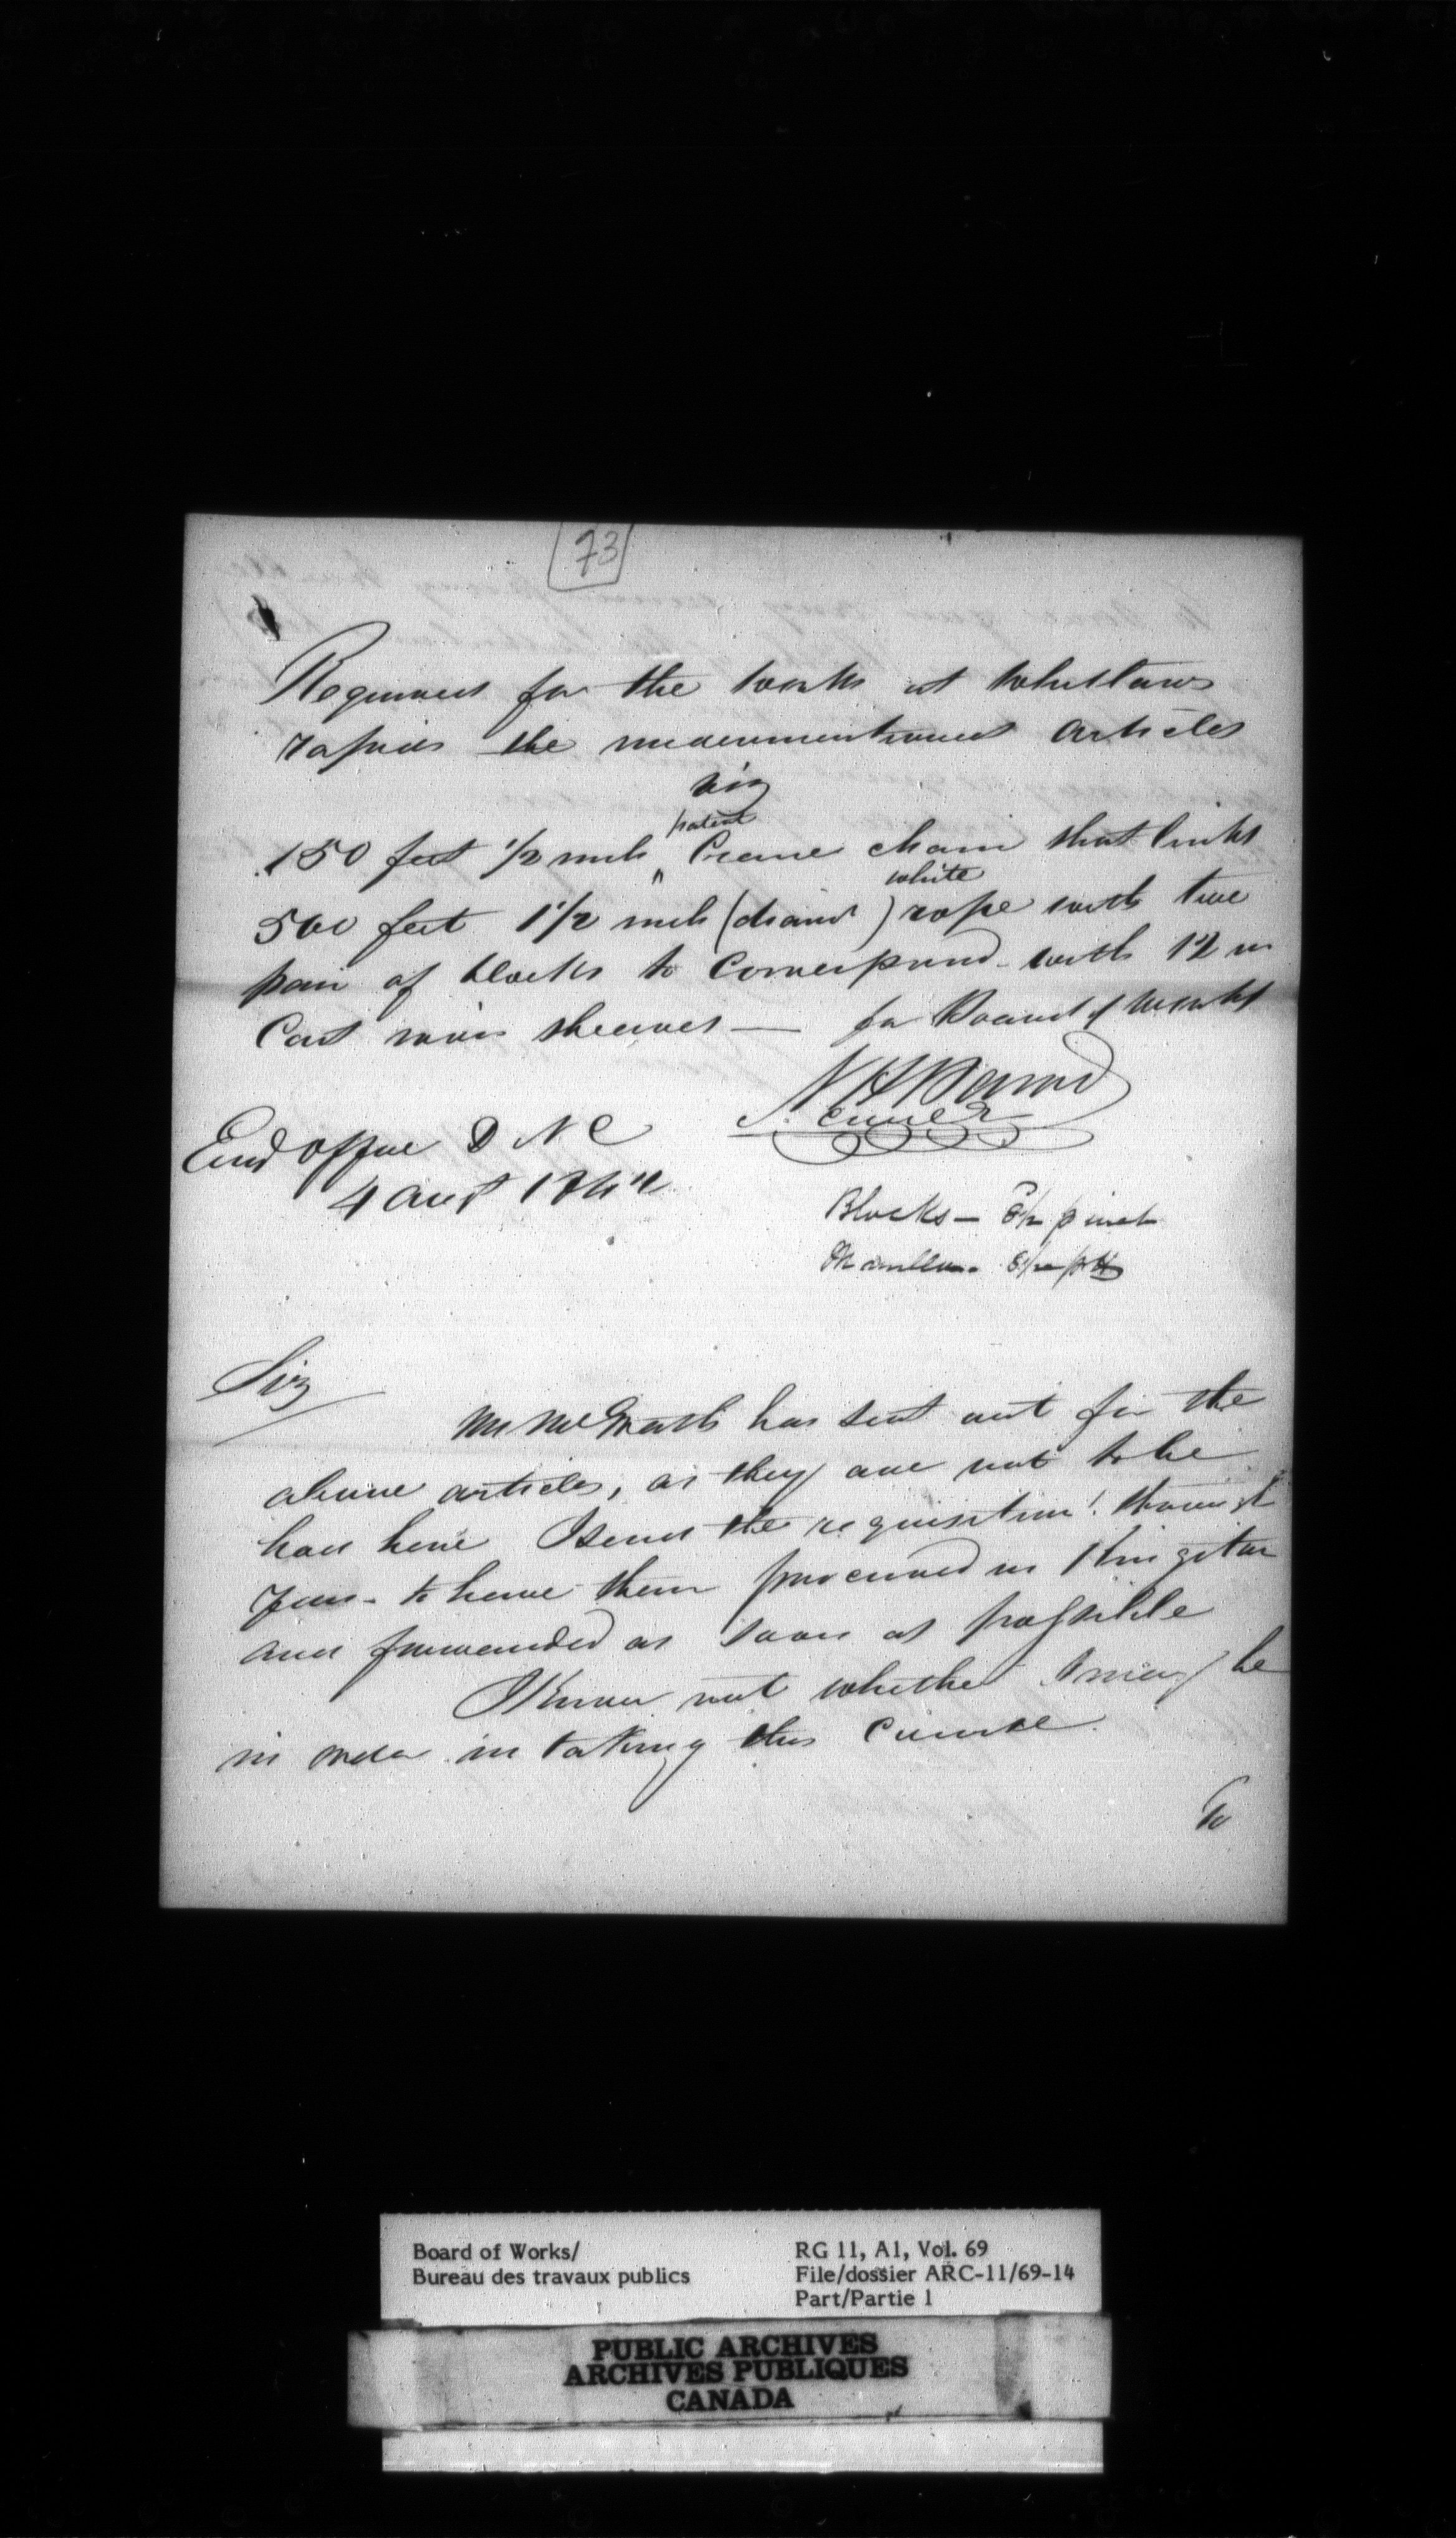 73
Required for the works at Whitlaws
rapids the undermentioned articles
viz
patent
150 feet 1/2 inch " Crane chain short links
white
500 feet 1 1/2 inch (diamr) rope with two
pair of blocks to correspond with 12 in
Cast iron sheaves — for Board of Works
N H Baird
Civil E
Eng Office D N C
4 Augt 1842
Blocks — p inch
Manilla.
Sir
Mr McGrath has sent out for the
above articles, as they are not to be
had here I send the requisition through
you - to have them procured in Kingston
and forwarded as soon as possible
I know not whether I may be
in order in taking this course.
To
Board of Works/
Bureau des travaux publics
RG 11, A1, Vol. 69
File/dossier ARC-11/69-14
Part/Partie 1
PUBLIC ARCHIVES
ARCHIVES PUBLIQUES
CANADA